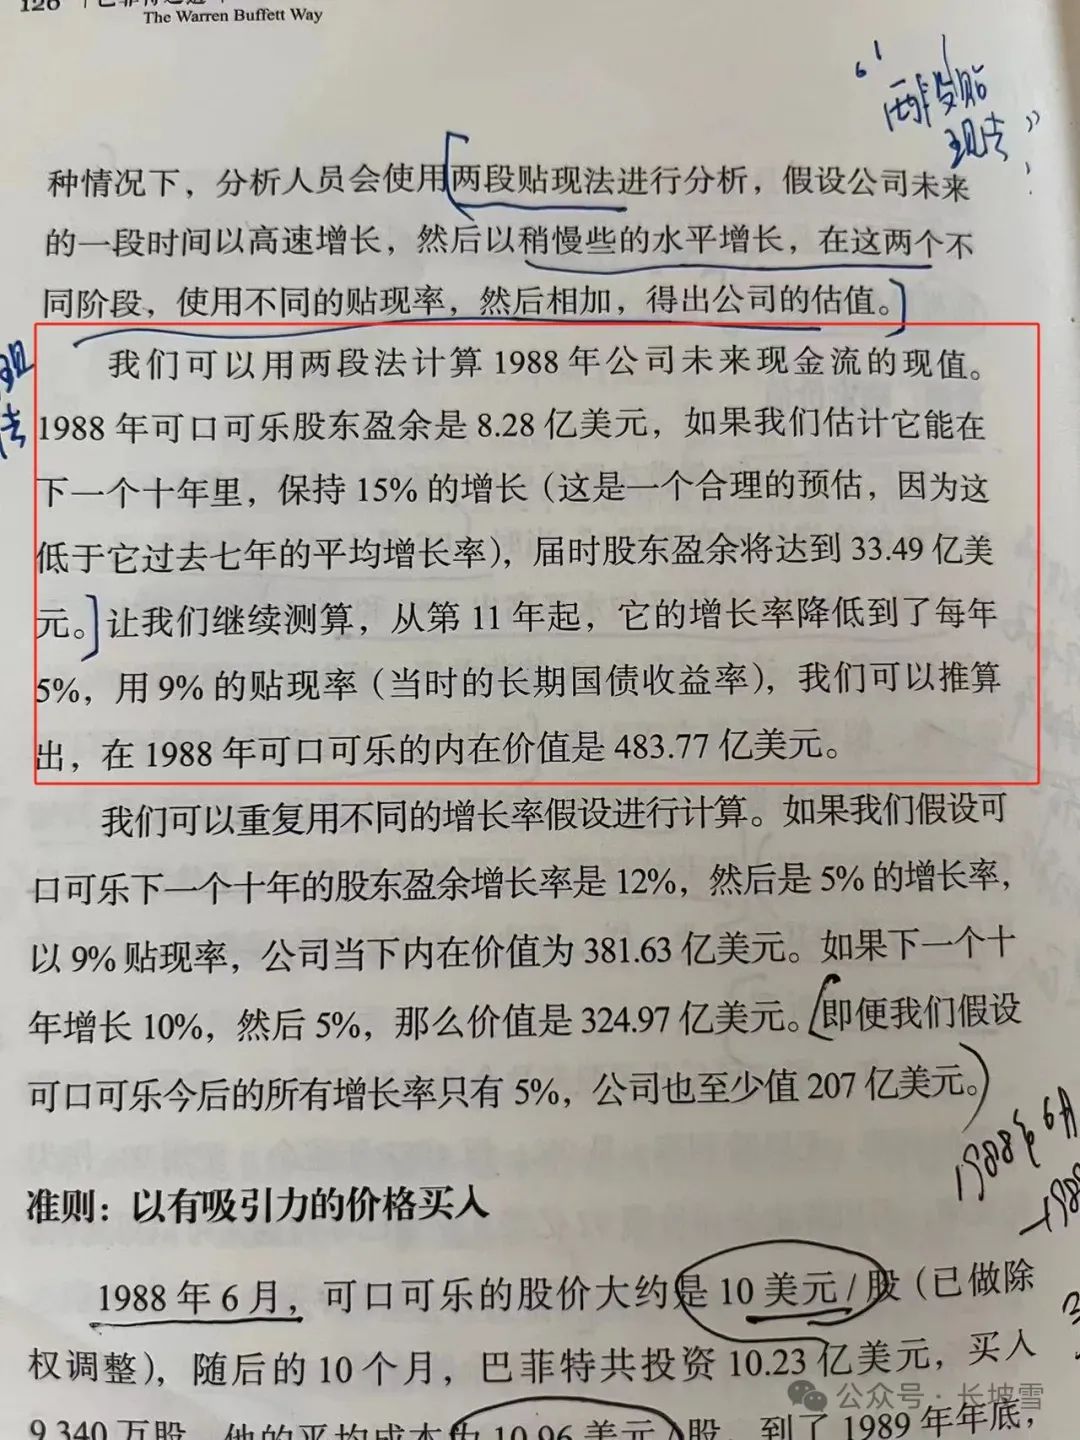 126
The Warren Buffett Way
“两段贴
现法”
种情况下，分析人员会使用两段贴现法进行分析，假设公司未来
的一段时间以高速增长，然后以稍慢些的水平增长，在这两个不
同阶段，使用不同的贴现率，然后相加，得出公司的估值。
我们可以用两段法计算 1988 年公司未来现金流的现值。
1988 年可口可乐股东盈余是 8.28 亿美元，如果我们估计它能在
下一个十年里，保持 15% 的增长（这是一个合理的预估，因为这
低于它过去七年的平均增长率），届时股东盈余将达到 33.49 亿美
元。让我们继续测算，从第 11 年起，它的增长率降低到了每年
5%，用 9% 的贴现率（当时的长期国债收益率），我们可以推算
出，在 1988 年可口可乐的内在价值是 483.77 亿美元。
我们可以重复用不同的增长率假设进行计算。如果我们假设可
口可乐下一个十年的股东盈余增长率是 12%，然后是 5% 的增长率，
以 9% 贴现率，公司当下内在价值为 381.63 亿美元。如果下一个十
年增长 10%，然后 5%，那么价值是 324.97 亿美元。即便我们假设
可口可乐今后的所有增长率只有 5%，公司也至少值 207 亿美元。
现
法
1988年6月
准则：以有吸引力的价格买入
1988 年 6 月，可口可乐的股价大约是 10 美元 / 股（已做除
权调整），随后的 10 个月，巴菲特共投资 10.23 亿美元，买入
9 340 万股，他的平均成本为 10.96 美元 / 股，到了 1989 年年底，
公众号 · 长坡雪